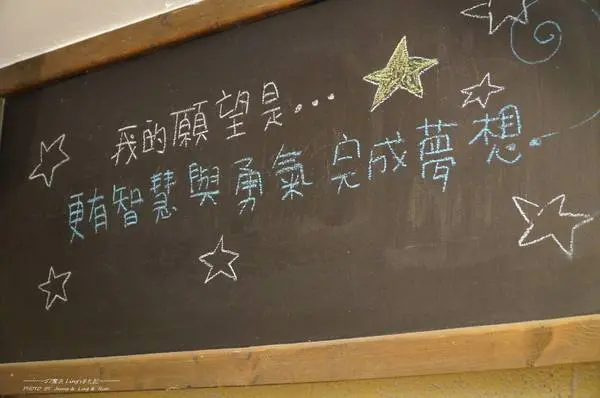 我的願望是...
更有智慧與勇氣完成夢想.
PHOTO BY